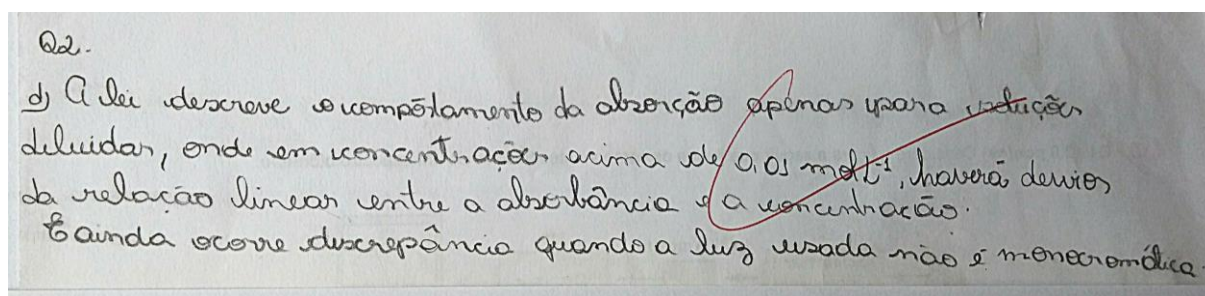 Q2.
d) A lei descreve o comportamento da absorção apenas para soluções
diluidas, onde em concentrações acima de 0,01 molL⁻¹, haverá desvios
da relação linear entre a absorbância e a concentração.
E ainda ocorre discrepância quando a luz usada não é monocromática.